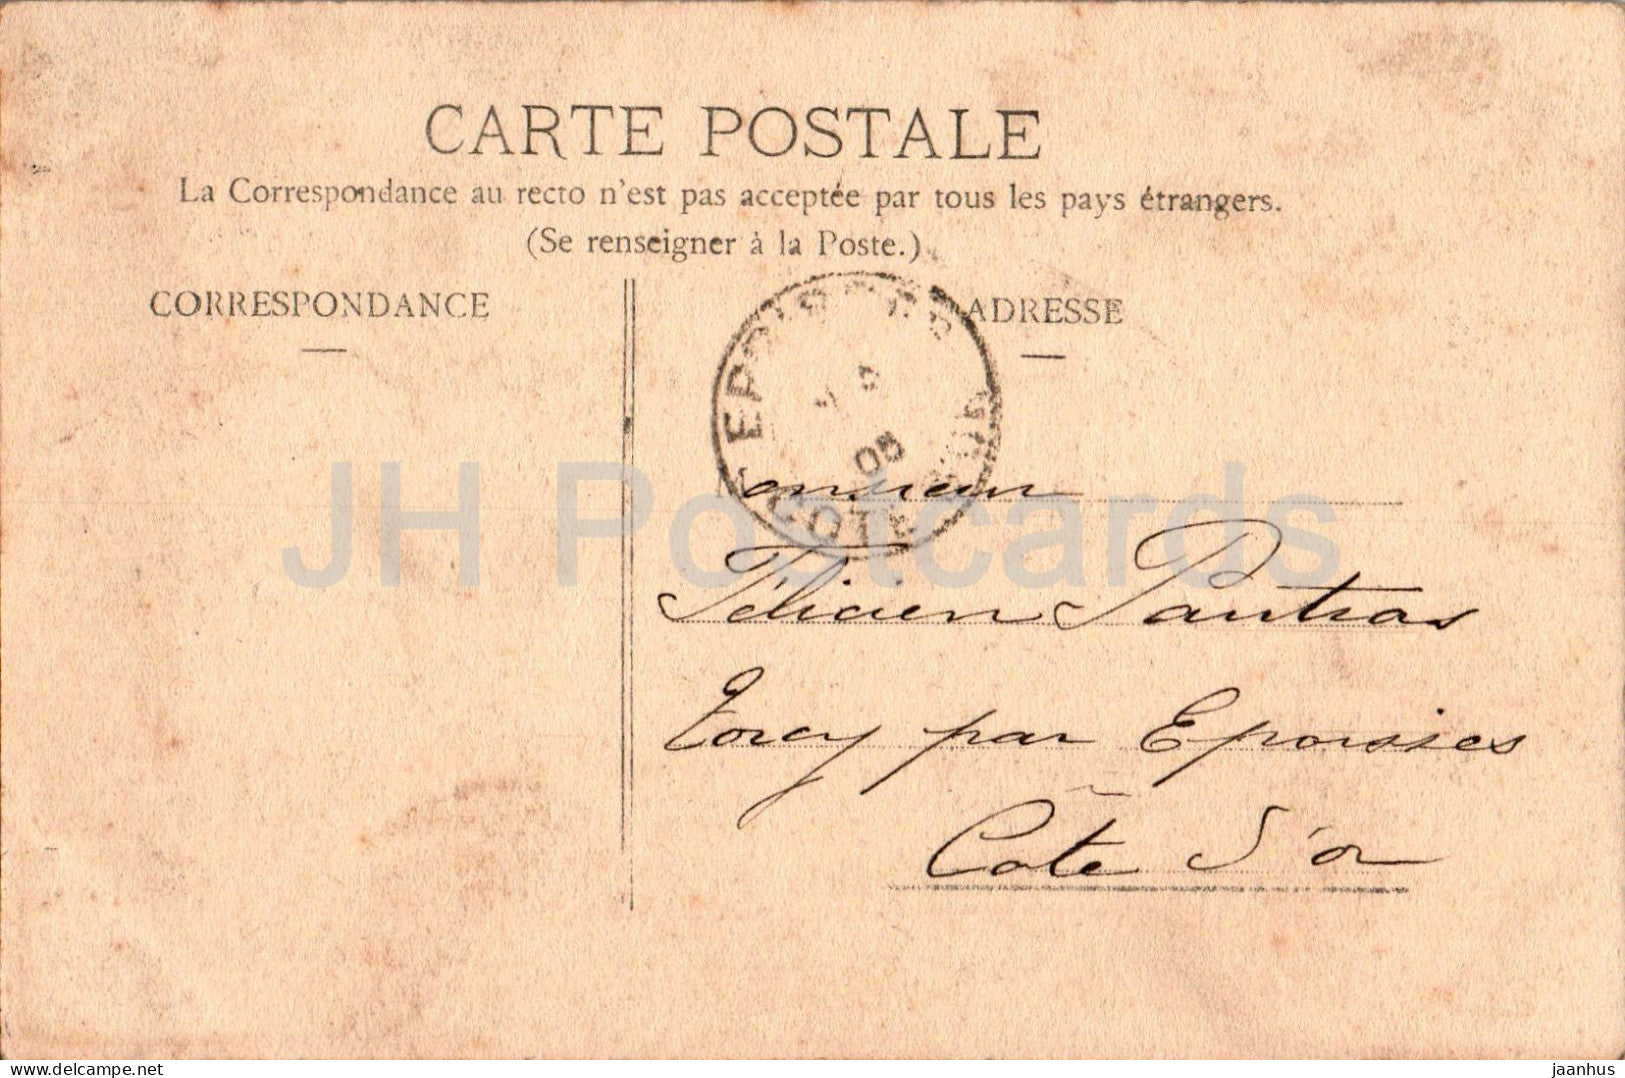 CARTE POSTALE
La Correspondance au recto n'est pas acceptée par tous les pays étrangers.
(Se renseigner à la Poste.)
CORRESPONDANCE
ADRESSE
EPOISSES
05
COTE
Monsieur
Félicien Pautras
Torcy par Epoisses
Côte d'or
JH Postcards
delcampe.net
jaanhus